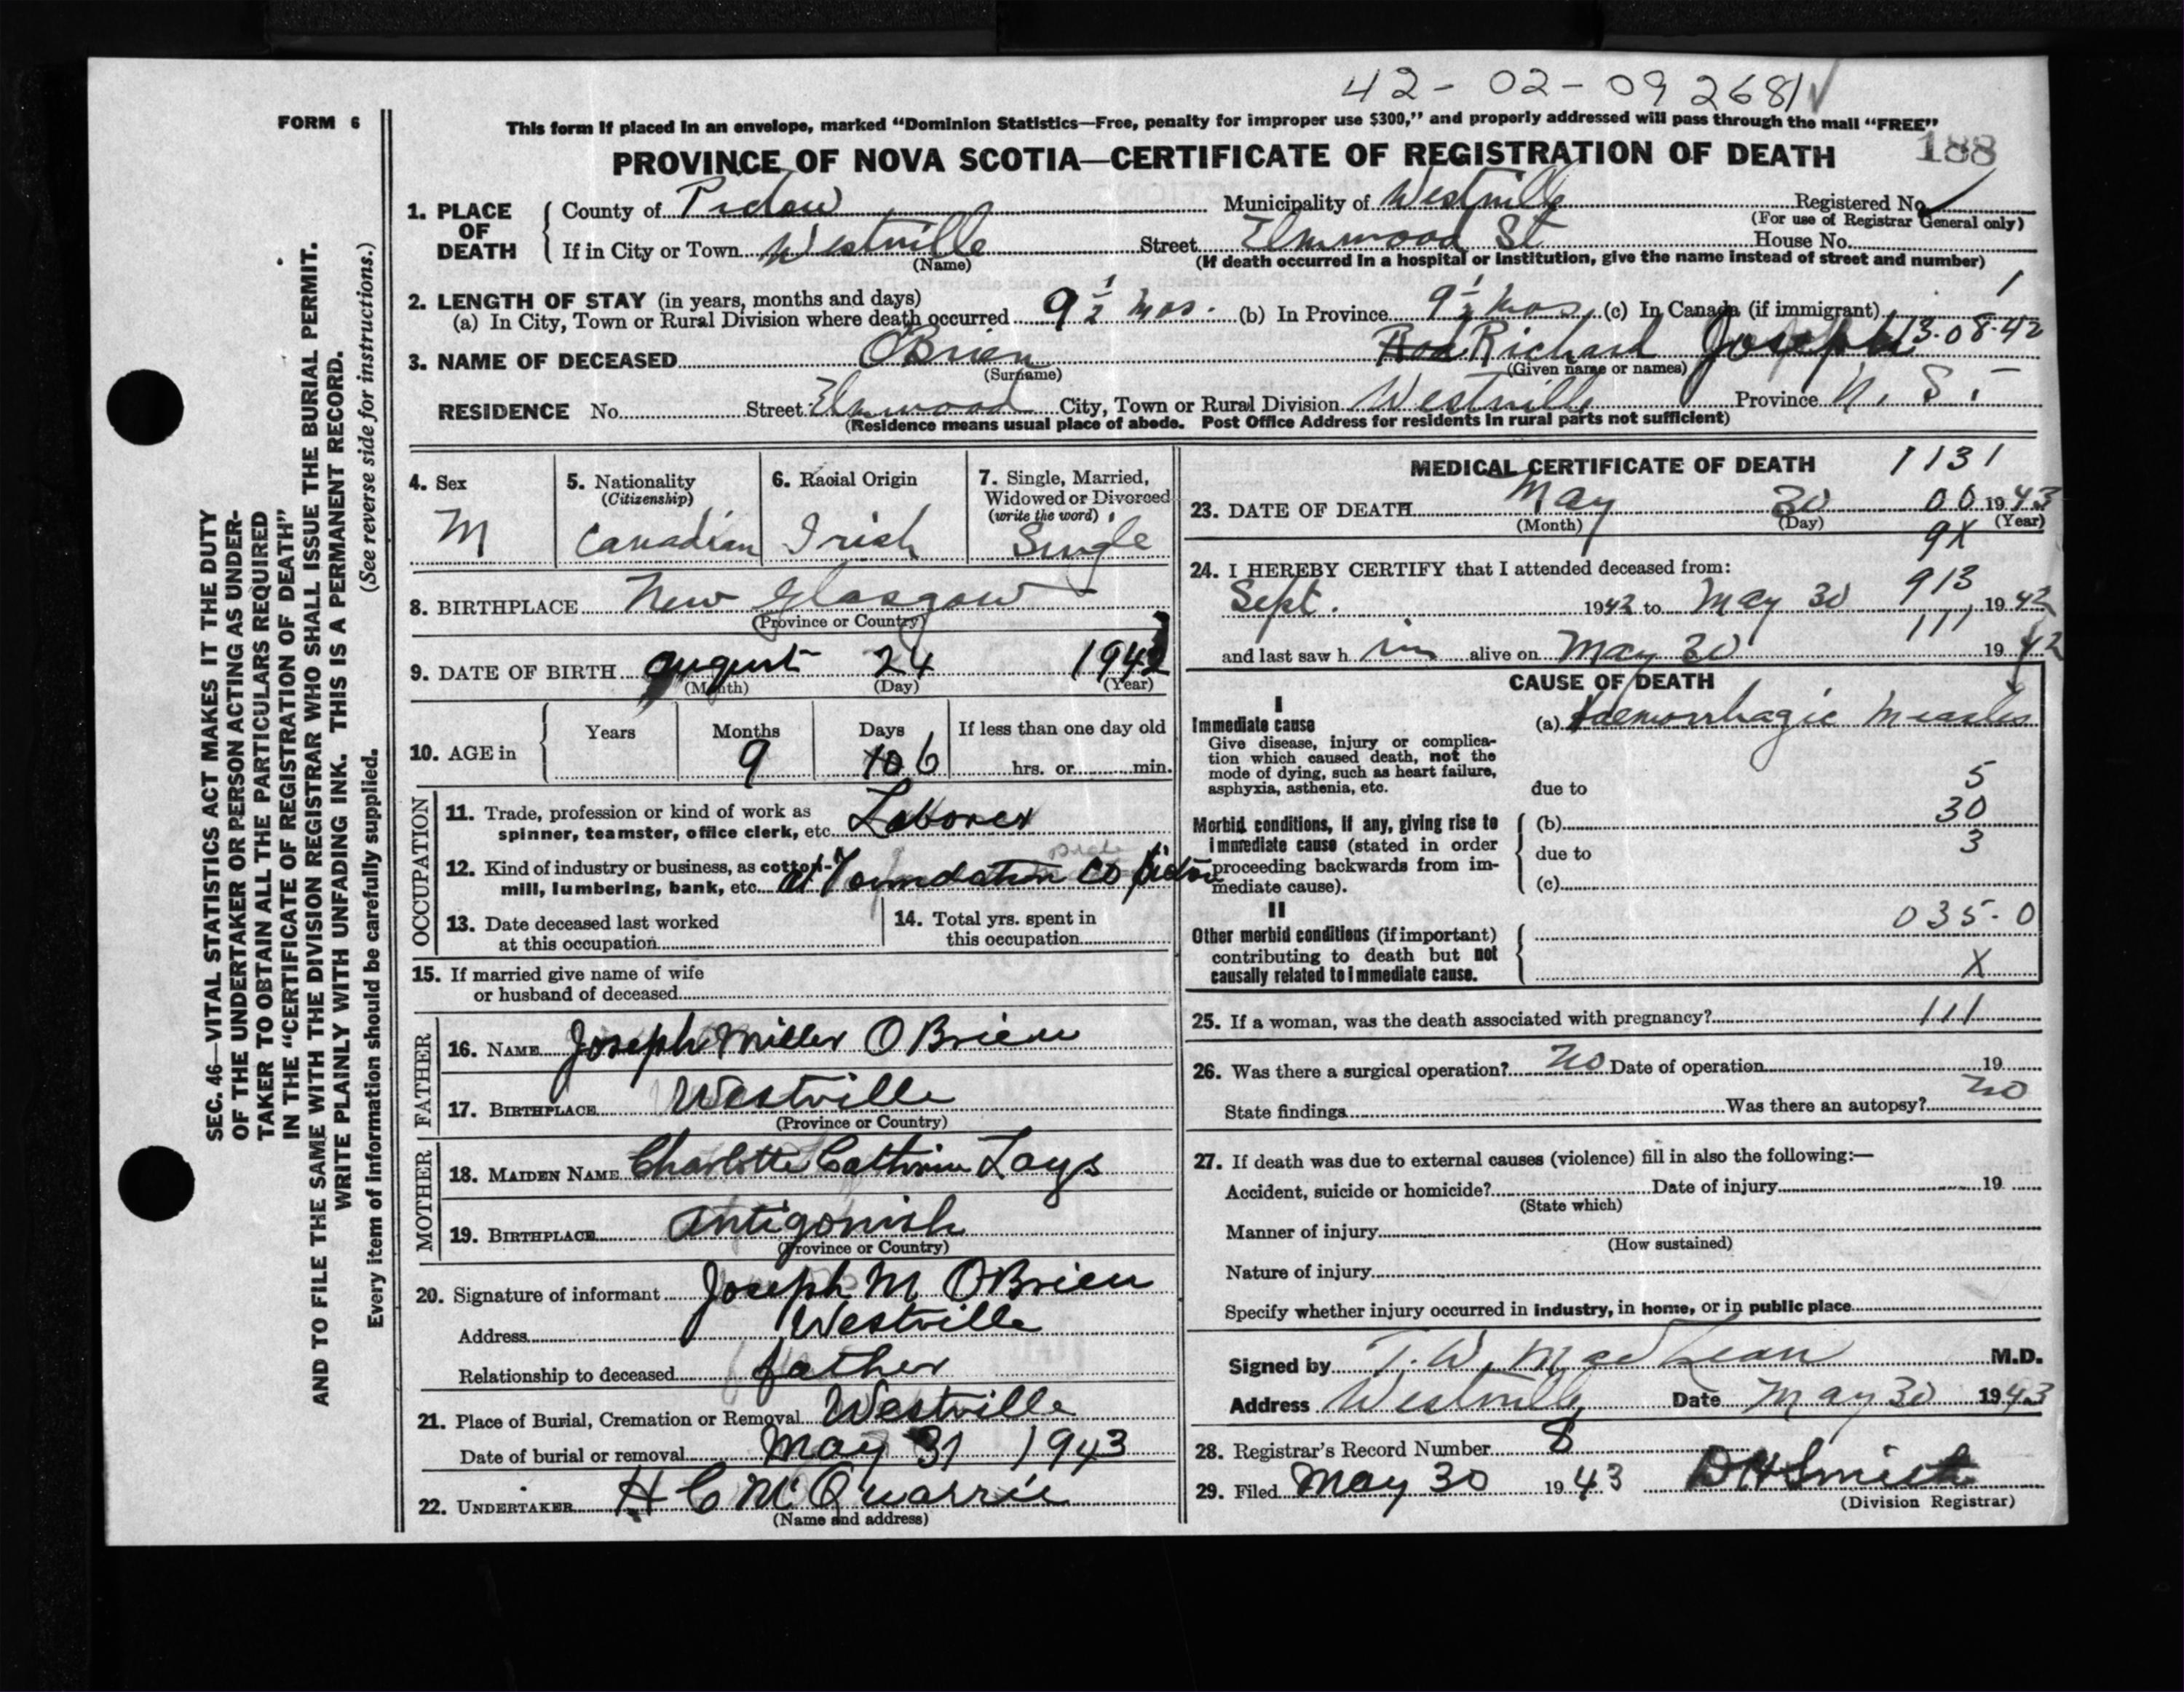 42-02-092681
FORM 6
This form if placed in an envelope, marked “Dominion Statistics—Free, penalty for improper use $300,” and properly addressed will pass through the mail “FREE”
188
PROVINCE OF NOVA SCOTIA—CERTIFICATE OF REGISTRATION OF DEATH
1. PLACE OF DEATH
County of Pictou Municipality of Westville Registered No.
(For use of Registrar General only)
If in City or Town Westville Street Elmwood St House No.
(Name) (If death occurred in a hospital or institution, give the name instead of street and number)
2. LENGTH OF STAY (in years, months and days) 1
(a) In City, Town or Rural Division where death occurred 9 1/2 mos. (b) In Province 9 1/2 mos (c) In Canada (if immigrant)
3. NAME OF DECEASED O'Brien Richard Joseph 13-08-42
(Surname) (Given name or names)
RESIDENCE No. Street Elmwood City, Town or Rural Division Westville Province N. S.
(Residence means usual place of abode. Post Office Address for residents in rural parts not sufficient)
4. Sex
M
5. Nationality
(Citizenship)
Canadian
6. Racial Origin
Irish
7. Single, Married,
Widowed or Divorced
(write the word)
Single
8. BIRTHPLACE New Glasgow
(Province or Country)
9. DATE OF BIRTH August 24 1942
(Month) (Day) (Year)
10. AGE in
Years Months Days If less than one day old
9 10 6 hrs. or min.
OCCUPATION
11. Trade, profession or kind of work as
spinner, teamster, office clerk, etc. Laborer
12. Kind of industry or business, as cotton-
mill, lumbering, bank, etc. at Foundation Co Pictou
13. Date deceased last worked
at this occupation
14. Total yrs. spent in
this occupation
15. If married give name of wife
or husband of deceased
FATHER
16. NAME Joseph Miller O Brien
17. BIRTHPLACE Westville
(Province or Country)
MOTHER
18. MAIDEN NAME Charlotte Catherine Lays
19. BIRTHPLACE Antigonish
(Province or Country)
20. Signature of informant Joseph M O Brien
Address Westville
Relationship to deceased father
21. Place of Burial, Cremation or Removal Westville
Date of burial or removal May 31 1943
22. UNDERTAKER H C McQuarrie
(Name and address)
MEDICAL CERTIFICATE OF DEATH 1131
23. DATE OF DEATH May 30 00 1943
(Month) (Day) (Year)
9X
24. I HEREBY CERTIFY that I attended deceased from:
913
Sept. 1942 to May 30, 1942
111
and last saw him alive on May 30 1942
CAUSE OF DEATH
I
Immediate cause
Give disease, injury or complica-
tion which caused death, not the
mode of dying, such as heart failure,
asphyxia, asthenia, etc.
(a) Haemorrhagic Measles
due to 5
Morbid conditions, if any, giving rise to
immediate cause (stated in order
proceeding backwards from im-
mediate cause).
(b) 30
due to 3
(c)
II
Other morbid conditions (if important)
contributing to death but not
causally related to immediate cause.
035-0
X
25. If a woman, was the death associated with pregnancy? 111
26. Was there a surgical operation? No Date of operation 19
State findings Was there an autopsy? No
27. If death was due to external causes (violence) fill in also the following:—
Accident, suicide or homicide? Date of injury 19
(State which)
Manner of injury
(How sustained)
Nature of injury
Specify whether injury occurred in industry, in home, or in public place
Signed by T. W. MacLean M.D.
Address Westville, Date May 30 1943
28. Registrar's Record Number 8
29. Filed May 30 1943 D H Smith
(Division Registrar)
SEC. 46—VITAL STATISTICS ACT MAKES IT THE DUTY
OF THE UNDERTAKER OR PERSON ACTING AS UNDER-
TAKER TO OBTAIN ALL THE PARTICULARS REQUIRED
IN THE “CERTIFICATE OF REGISTRATION OF DEATH”
AND TO FILE THE SAME WITH THE DIVISION REGISTRAR WHO SHALL ISSUE THE BURIAL PERMIT.
WRITE PLAINLY WITH UNFADING INK. THIS IS A PERMANENT RECORD.
Every item of information should be carefully supplied. (See reverse side for instructions.)